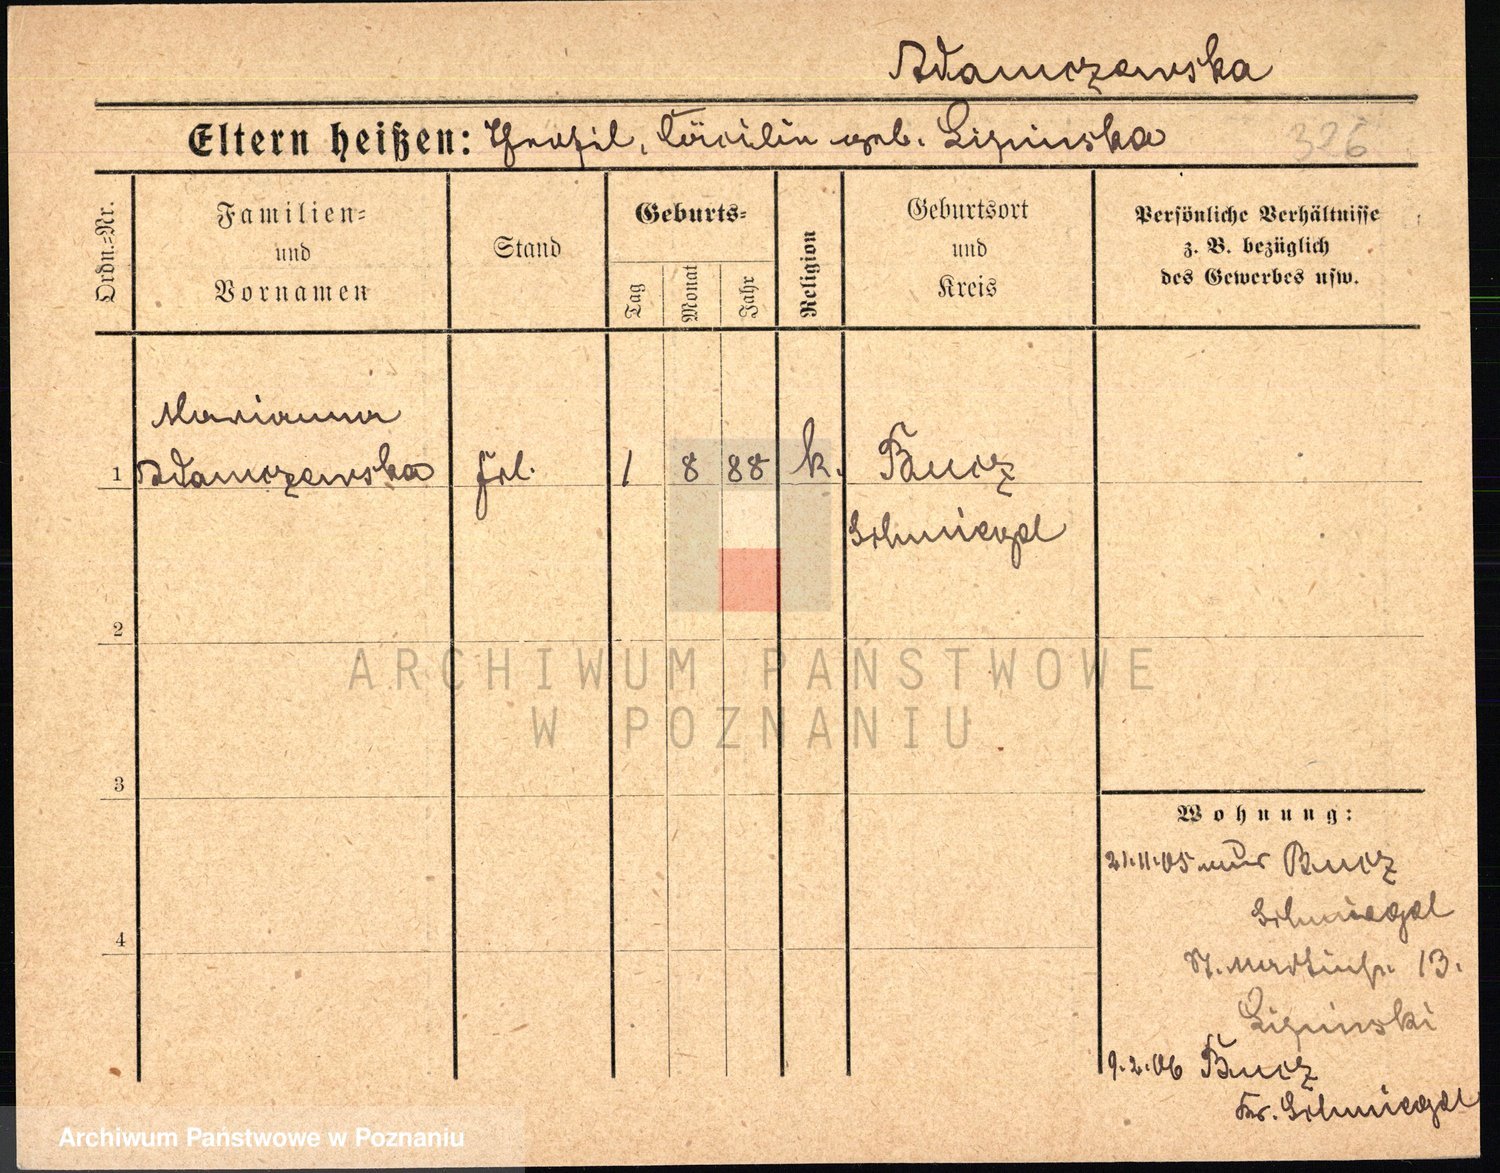 Adamczewska
Eltern heißen: Theofil, Cäcilie geb. Lipinska
326
Ordn.=Nr.
Familien=
und
Vornamen
Stand
Geburts=
Tag
Monat
Jahr
Religion
Geburtsort
und
Kreis
Persönliche Verhältnisse
z. B. bezüglich
des Gewerbes usw.
Marianna
1 Adamczewska Frl. 1 8 88 k. Bucz
Schmiegel
2
3
4
Wohnung:
21.11.05 aus Bucz
Schmiegel
St. Martinstr. 13.
Lipinski
9.2.06 Bucz
Kr. Schmiegel
ARCHIWUM PAŃSTWOWE
W POZNANIU
Archiwum Państwowe w Poznaniu